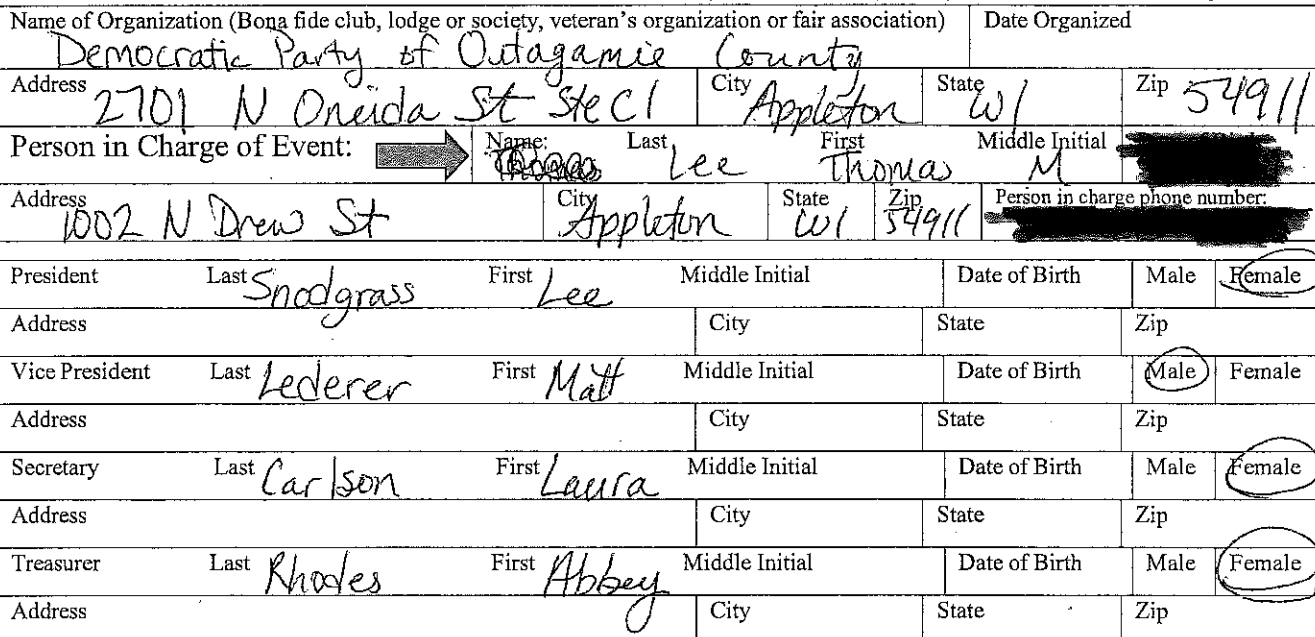 Name of Organization (Bona fide club, lodge or society, veteran's organization or fair association) Date Organized
Democratic Party of Outagamie County
Address 2701 N Oneida St Ste C1 City Appleton State WI Zip 54911
Person in Charge of Event: Name: Last Lee First Thomas Middle Initial M
Address 1002 N Drew St City Appleton State WI Zip 54911 Person in charge phone number:
President Last Snodgrass First Lee Middle Initial Date of Birth Male Female
Address City State Zip
Vice President Last Lederer First Matt Middle Initial Date of Birth Male Female
Address City State Zip
Secretary Last Carlson First Laura Middle Initial Date of Birth Male Female
Address City State Zip
Treasurer Last Rhodes First Abbey Middle Initial Date of Birth Male Female
Address City State Zip